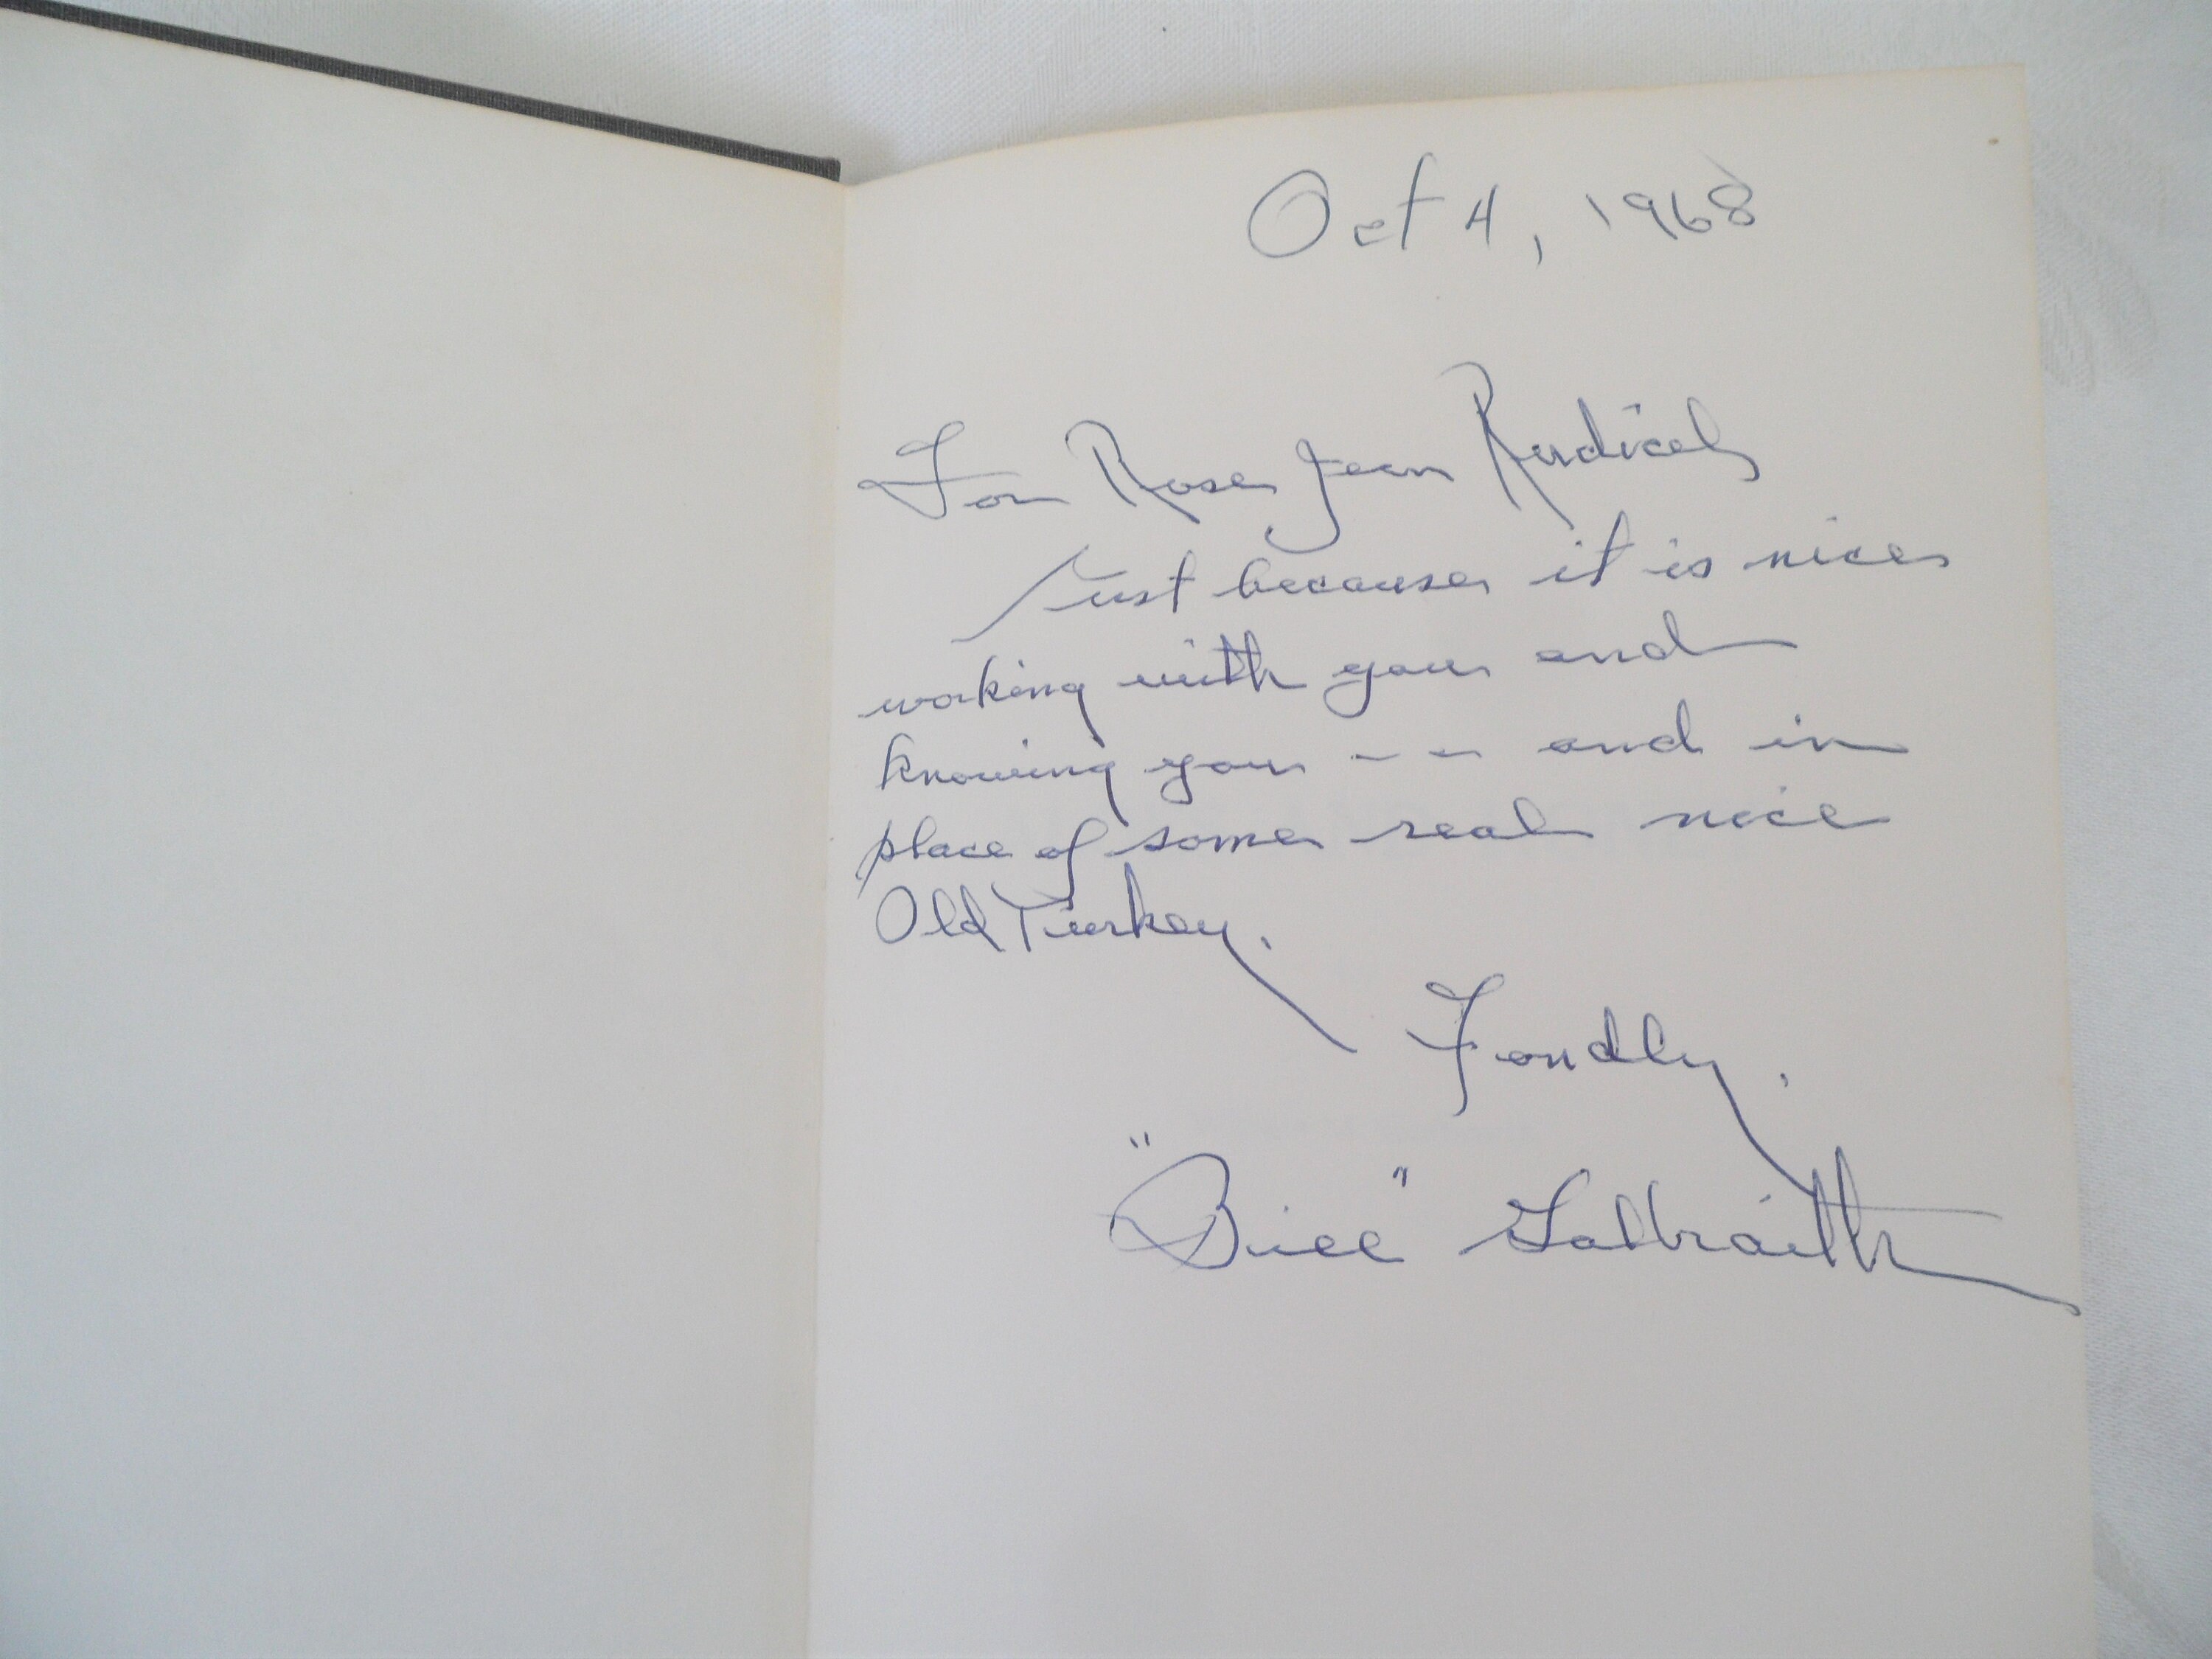 Oct 4, 1968
For Rose Jean
Just because it is nice
working with you and
knowing you - - and in
place of some real nice
Old Turkey.
Fondly,
"Bill" Galbraith